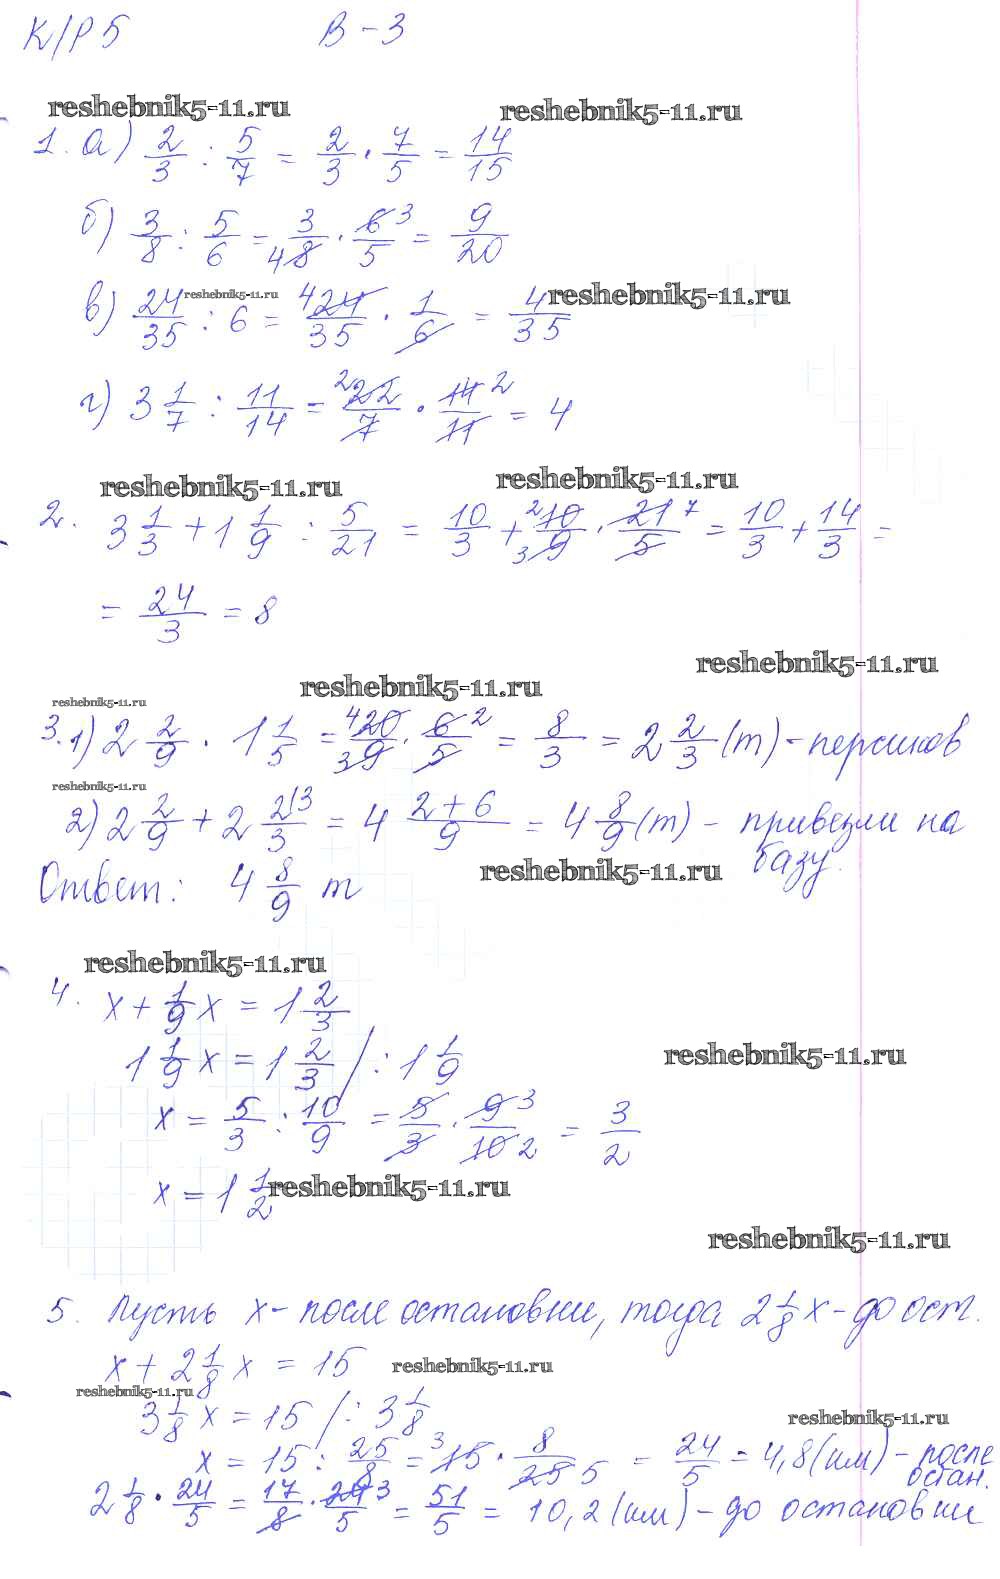 К/Р 5 В - 3
reshebnik5-11.ru reshebnik5-11.ru
1. а) 2/3 : 5/7 = 2/3 · 7/5 = 14/15
б) 3/8 : 5/6 = 3/8 4 · 6/5 3 = 9/20
в) 24/35 : 6 = 4 24/35 · 1/6 = 4/35
reshebnik5-11.ru reshebnik5-11.ru
г) 3 1/7 : 11/14 = 2 22/7 · 14/11 2 = 4
reshebnik5-11.ru reshebnik5-11.ru
2. 3 1/3 + 1 1/9 : 5/21 = 10/3 + 2 10/9 3 · 21/5 7 = 10/3 + 14/3 =
= 24/3 = 8
reshebnik5-11.ru
reshebnik5-11.ru
reshebnik5-11.ru
3. 1) 2 2/9 · 1 1/5 = 4 20/9 3 · 6/5 2 = 8/3 = 2 2/3 (т) - персиков
reshebnik5-11.ru
2) 2 2/9 + 2 2/3 |3 = 4 2+6/9 = 4 8/9 (т) - привезли на
базу.
reshebnik5-11.ru
Ответ: 4 8/9 т
reshebnik5-11.ru
4. х + 1/9 х = 1 2/3
1 1/9 х = 1 2/3 / : 1 1/9
reshebnik5-11.ru
х = 5/3 : 10/9 = 5/3 · 9/10 3 2 = 3/2
х = 1 1/2
reshebnik5-11.ru
reshebnik5-11.ru
5. Пусть х - после остановки, тогда 2 1/8 х - до ост.
х + 2 1/8 х = 15
reshebnik5-11.ru
reshebnik5-11.ru
3 1/8 х = 15 / : 3 1/8
reshebnik5-11.ru
х = 15 : 25/8 = 3 15 · 8/25 5 = 24/5 = 4,8 (км) - после
остан.
2 1/8 · 24/5 = 17/8 · 24/5 3 = 51/5 = 10,2 (км) - до остановки